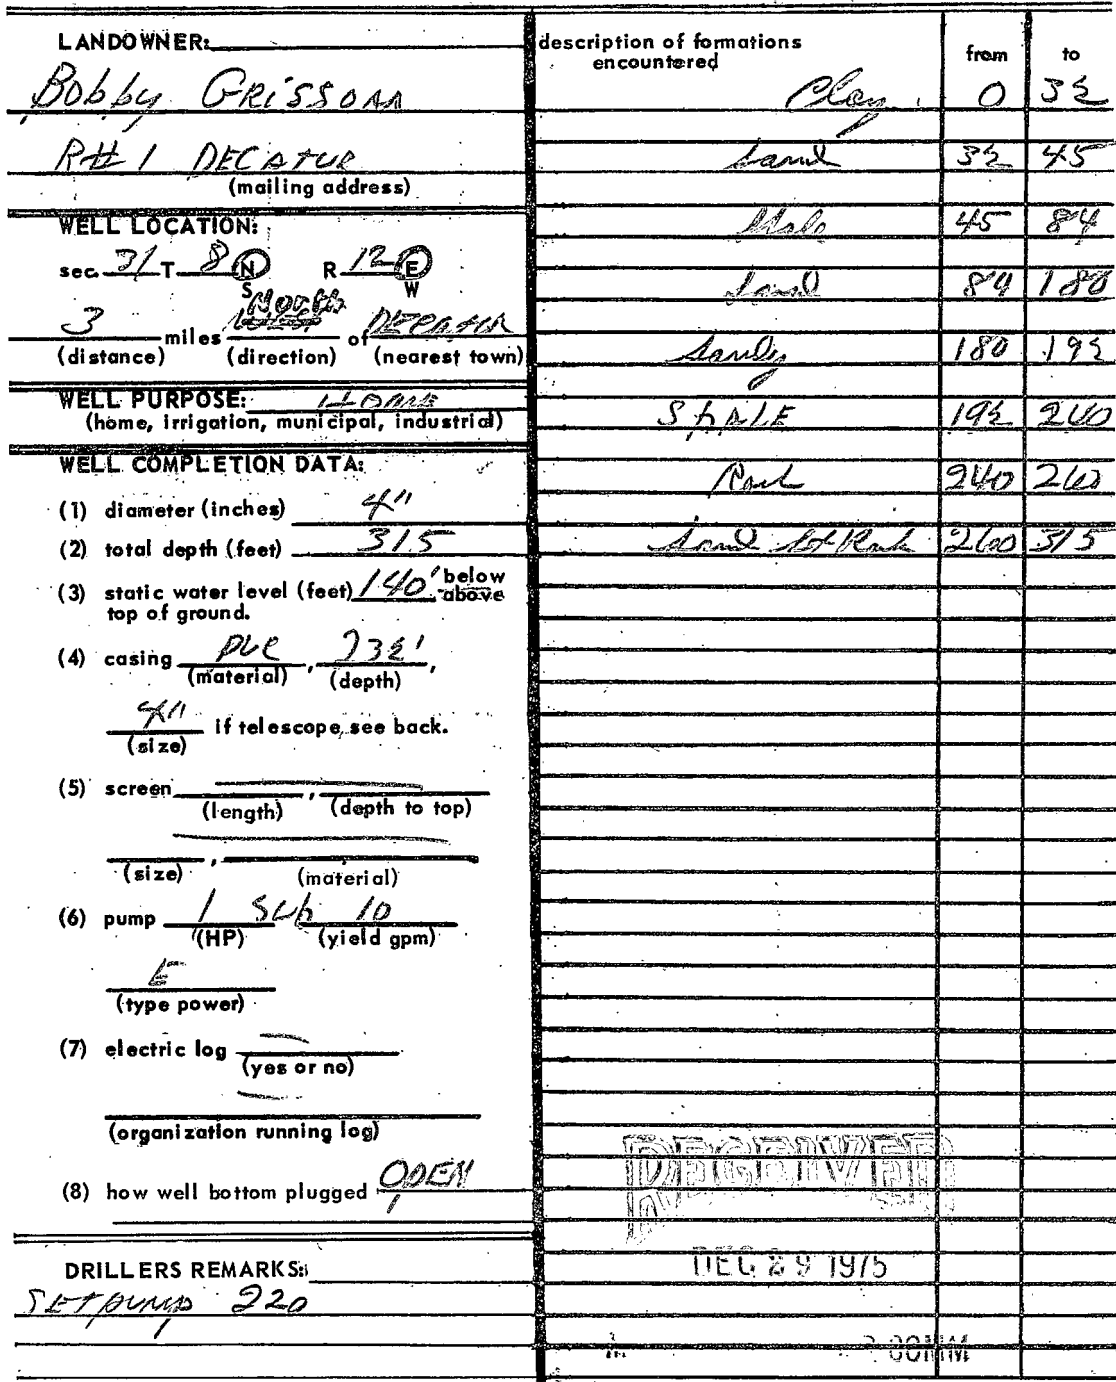 LANDOWNER:
Bobby GRISSOM
R#1 DECATUR
(mailing address)
WELL LOCATION:
sec. 31 T 8 N S R 12 E W
3 miles North of DECATUR
(distance) (direction) (nearest town)
WELL PURPOSE: HOME
(home, irrigation, municipal, industrial)
WELL COMPLETION DATA:
(1) diameter (inches) 4"
(2) total depth (feet) 315
(3) static water level (feet) 140' below above
top of ground.
(4) casing PVC, 232',
(material) (depth)
4" if telescope see back.
(size)
(5) screen
(length), (depth to top)
(size), (material)
(6) pump 1 Sub 10
(HP) (yield gpm)
E
(type power)
(7) electric log
(yes or no)
(organization running log)
(8) how well bottom plugged OPEN
DRILLERS REMARKS:
SET pump 220
description of formations encountered from to
Clay 0 32
Sand 32 45
Shale 45 84
Sand 84 180
Sandy 180 192
SHALE 192 240
Rock 240 260
Sand Rock 260 315
RECEIVED
DEC 29 1975
COMM